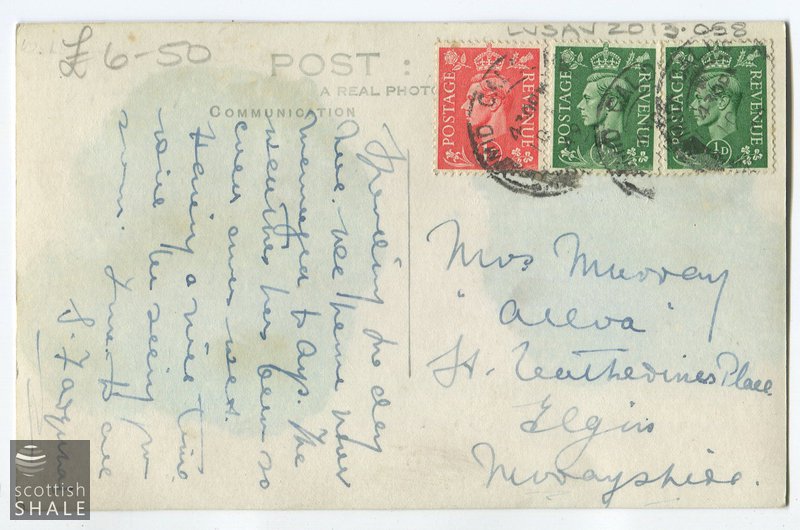 £6-50
LVSAV 2013.058
POST :
A REAL PHOTO
COMMUNICATION
POSTAGE REVENUE
POSTAGE REVENUE
POSTAGE REVENUE
½D
Spending the day
here. We have now
managed to Ayr. The
weather has been so
even over west.
Having a nice time
will be seeing you
soon. Love to all
J. Farquhar
Mrs Murray
"Allva"
St. Catherines Place
Elgin
Morayshire.
scottish
SHALE